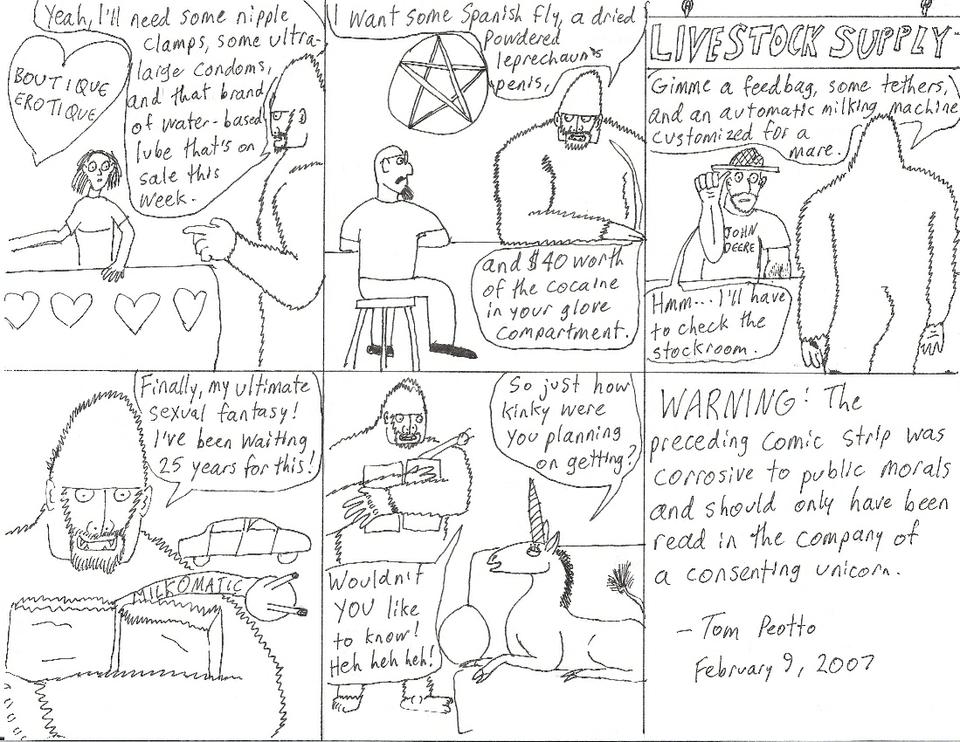 Yeah, I'll need some nipple
clamps, some ultra-
large condoms,
and that brand
of water-based
lube that's on
sale this
week.
BOUTIQUE
EROTIQUE
I want some Spanish fly, a dried
powdered
leprechaun's
penis,
and $40 worth
of the cocaine
in your glove
compartment.
LIVESTOCK SUPPLY
Gimme a feedbag, some tethers,
and an automatic milking machine
customized for a
mare.
JOHN
DEERE
Hmm... I'll have
to check the
stockroom.
Finally, my ultimate
sexual fantasy!
I've been waiting
25 years for this!
MILKOMATIC
So just how
kinky were
you planning
on getting?
Wouldn't
YOU like
to know!
Heh heh heh!
WARNING: The
preceding comic strip was
corrosive to public morals
and should only have been
read in the company of
a consenting unicorn.
- Tom Peotto
February 9, 2007